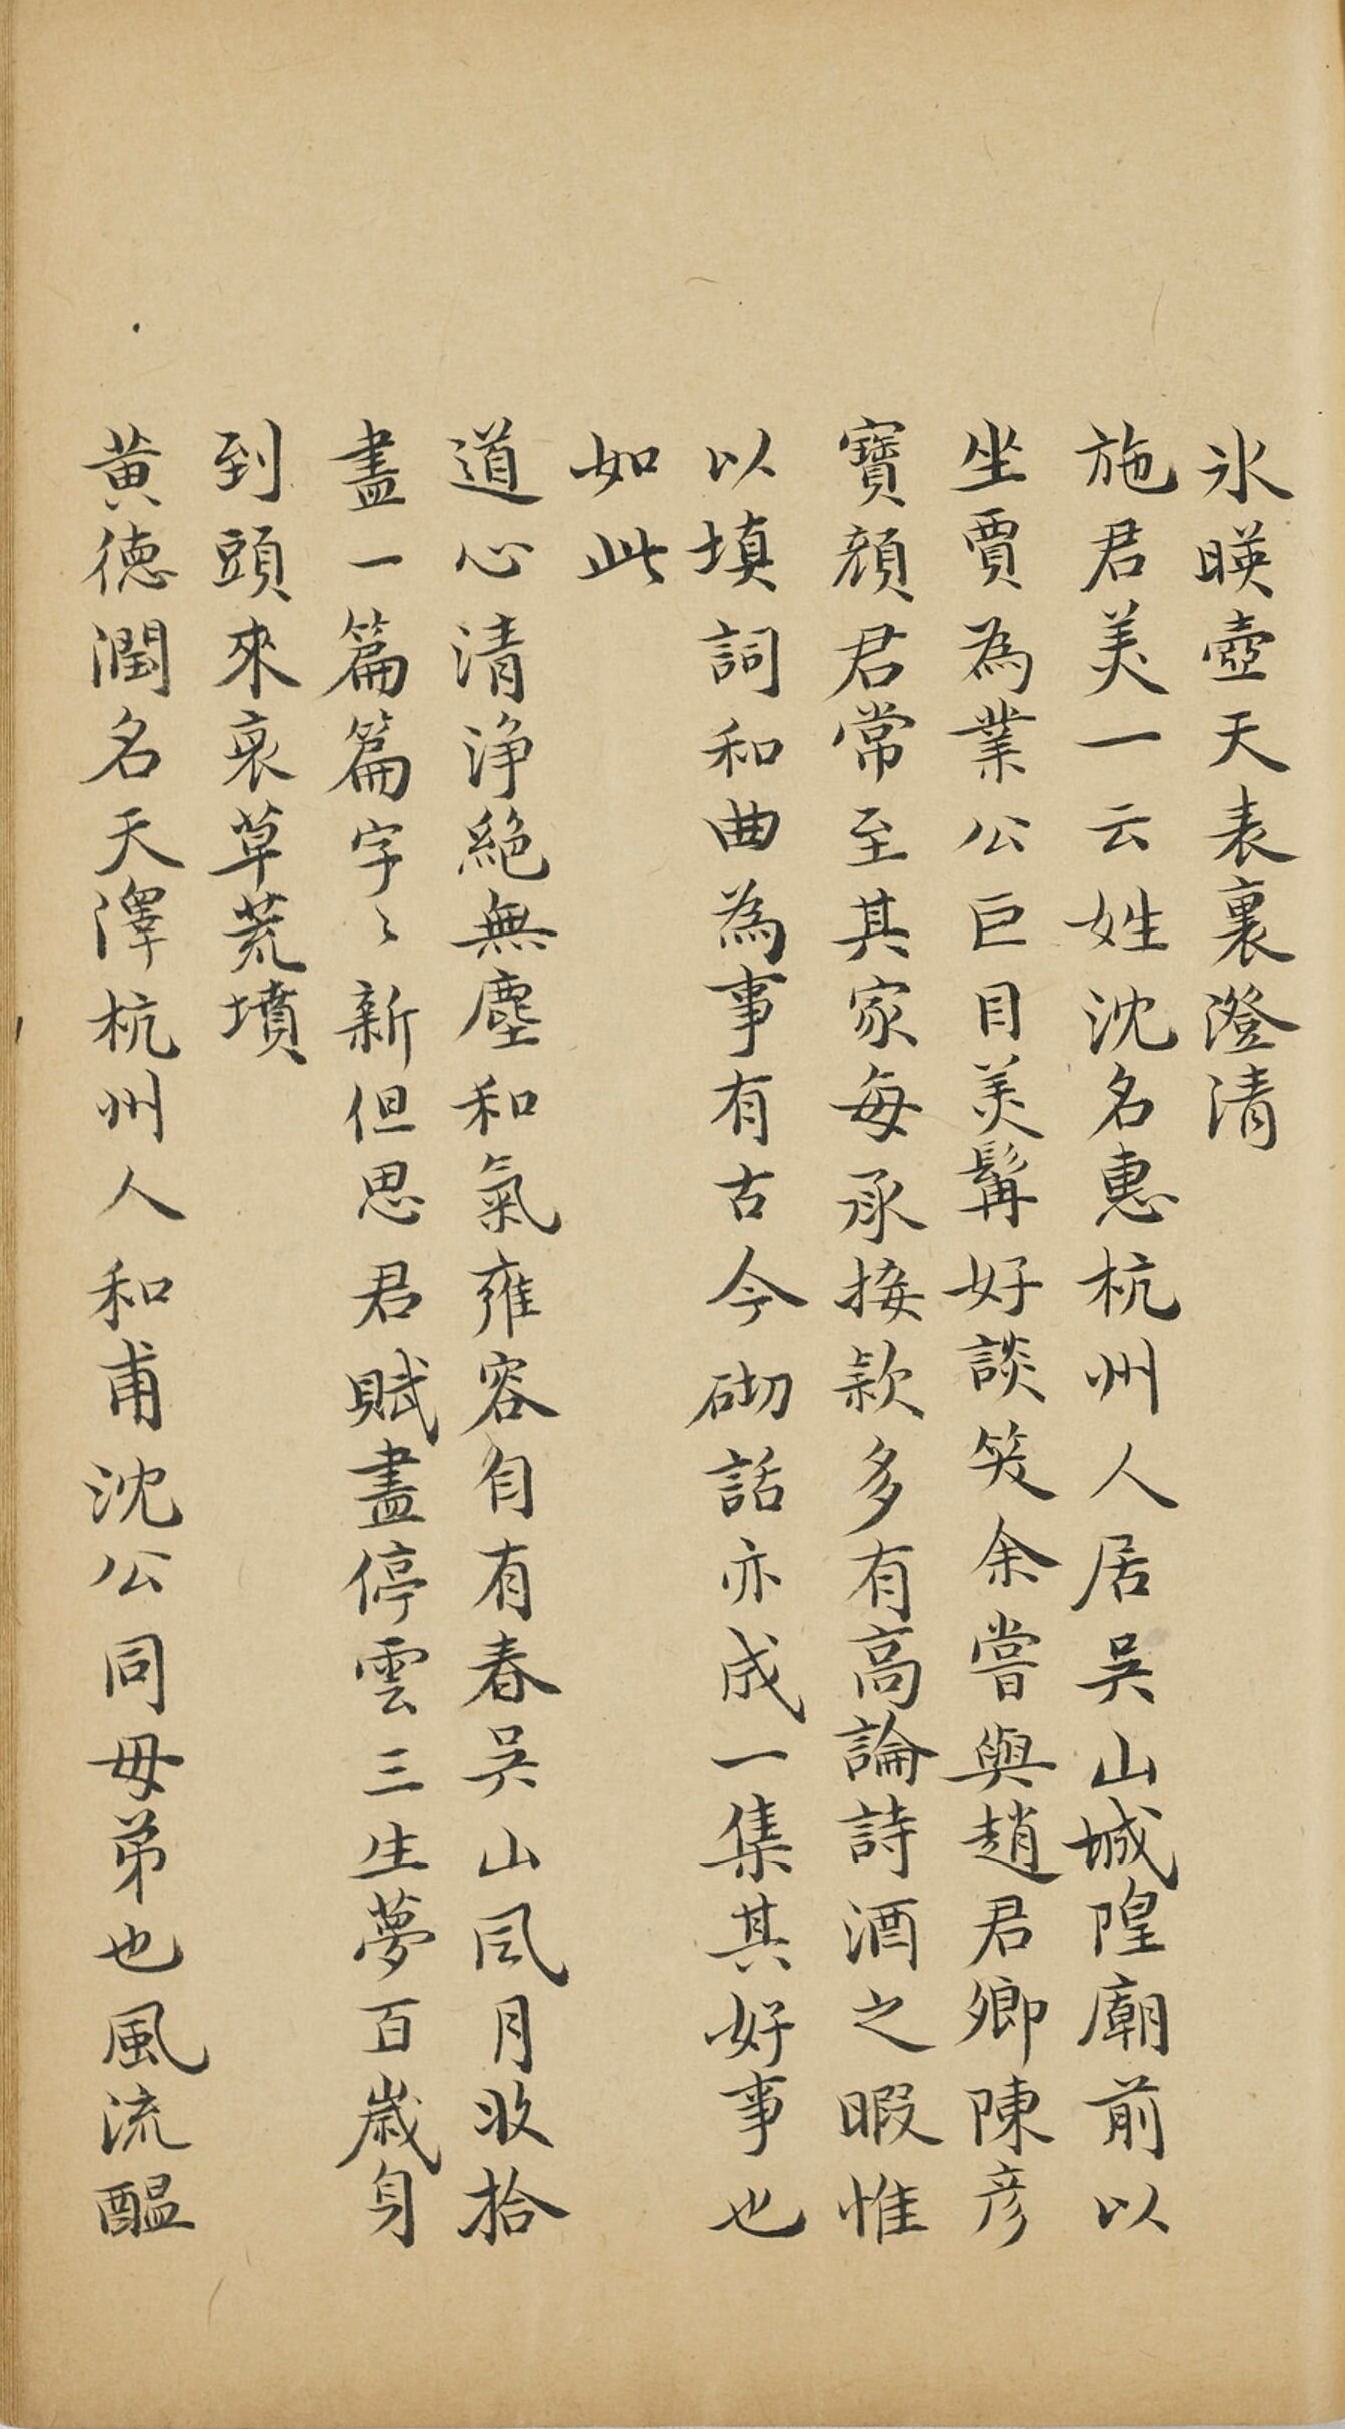 氷暎壺天表裏澄清
施君美一云姓沈名惠杭州人居吳山城隍廟前以
坐賈為業公巨目美髯好談笑余嘗與趙君卿陳彦
寶顔君常至其家每承接款多有高論詩酒之暇惟
以填詞和曲為事有古今砌話亦成一集其好事也
如此
道心清淨絕無塵和氣雍容自有春吳山風月收拾
盡一篇篇字〻新但思君賦盡停雲三生夢百歲身
到頭來衰草荒墳
黃德潤名天澤杭州人和甫沈公同母弟也風流醖